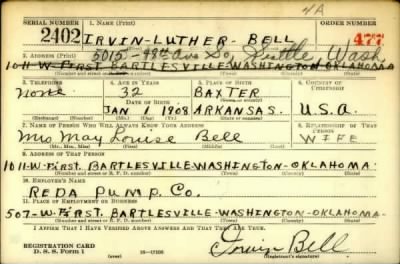 4A
SERIAL NUMBER 1. NAME (Print) ORDER NUMBER
2402 IRVIN-LUTHER-BELL 477
5015-48th Ave So, Seattle, Wash
2. ADDRESS (Print)
1011-W-FIRST. BARTLESVILLE-WASHINGTON-OKLAHOMA
3. TELEPHONE 4. AGE IN YEARS 5. PLACE OF BIRTH 6. COUNTRY OF CITIZENSHIP
None 32 BAXTER
DATE OF BIRTH
JAN 1 1908 ARKANSAS. U.S.A.
7. NAME OF PERSON WHO WILL ALWAYS KNOW YOUR ADDRESS 8. RELATIONSHIP OF THAT PERSON
May Louise Bell WIFE
(Mr., Mrs., Miss) (First) (Middle) (Last)
9. ADDRESS OF THAT PERSON
1011-W-First. BARTLESVILLE-WASHINGTON-OKLAHOMA.
(Number and street or R. F. D. number) (Town) (County) (State)
10. EMPLOYER'S NAME
REDA PUMP. CO.
11. PLACE OF EMPLOYMENT OR BUSINESS
507-W-FIRST. BARTLESVILLE-WASHINGTON-OKLAHOMA-
(Number and street or R. F. D. number) (Town) (County) (State)
I AFFIRM THAT I HAVE VERIFIED ABOVE ANSWERS AND THAT THEY ARE TRUE.
REGISTRATION CARD
D. S. S. Form 1 (over) Irvin Bell
(Registrant's signature)